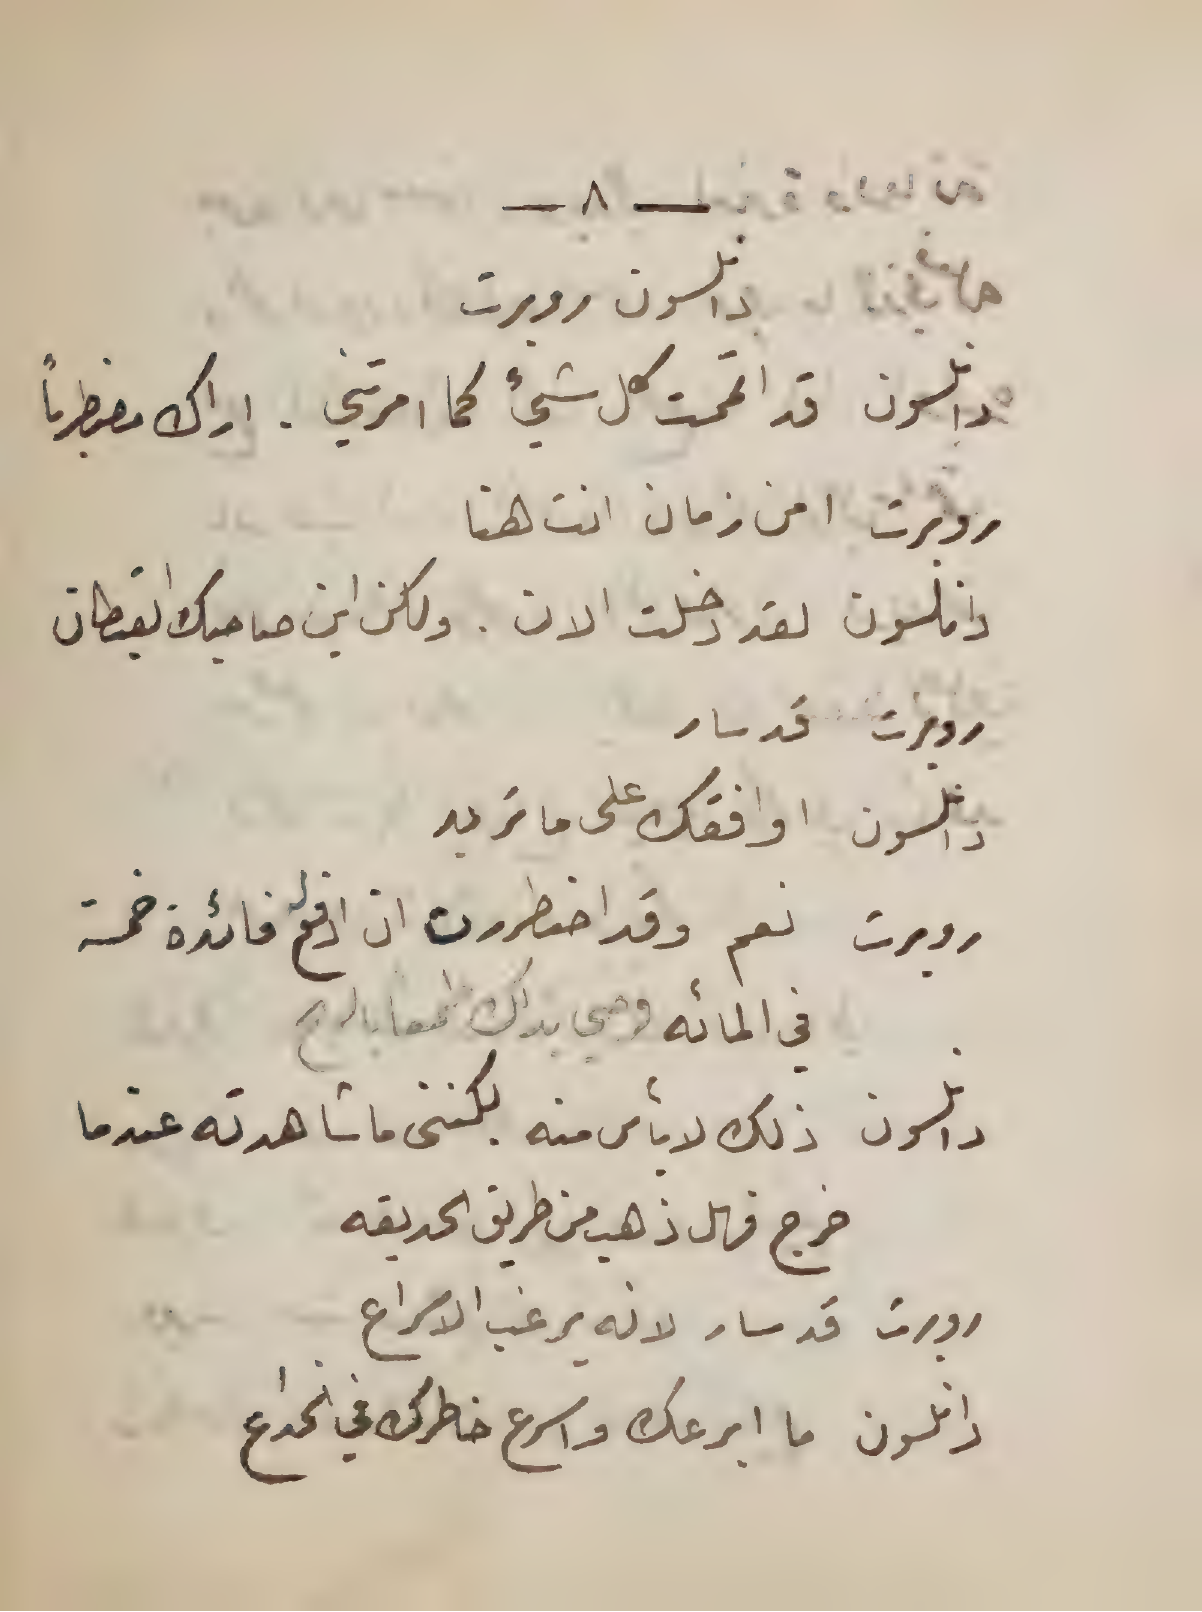 — ٨ —
دانلسون روبرت
دانلسون قد اتممت كل شيئ كما امرتني . اراك مضطرباً
روبرت امن زمان انت هنا
دانلسون لقد دخلت الان . ولكن اين صاحبك القبطان
روبرت قد سار
دانلسون اوافقك على ما تريد
روبرت نعم وقد اضطررت ان ادفع فائدة خمسة
في المائه
دانلسون ذلك لا بأس منه لكنني ما شاهدته عندما
خرج فهل ذهب من طريق الحديقه
روبرت قد سار لانه يرغب الاسراع
دانلسون ما ابرعك واسرع خاطرك في الخداع